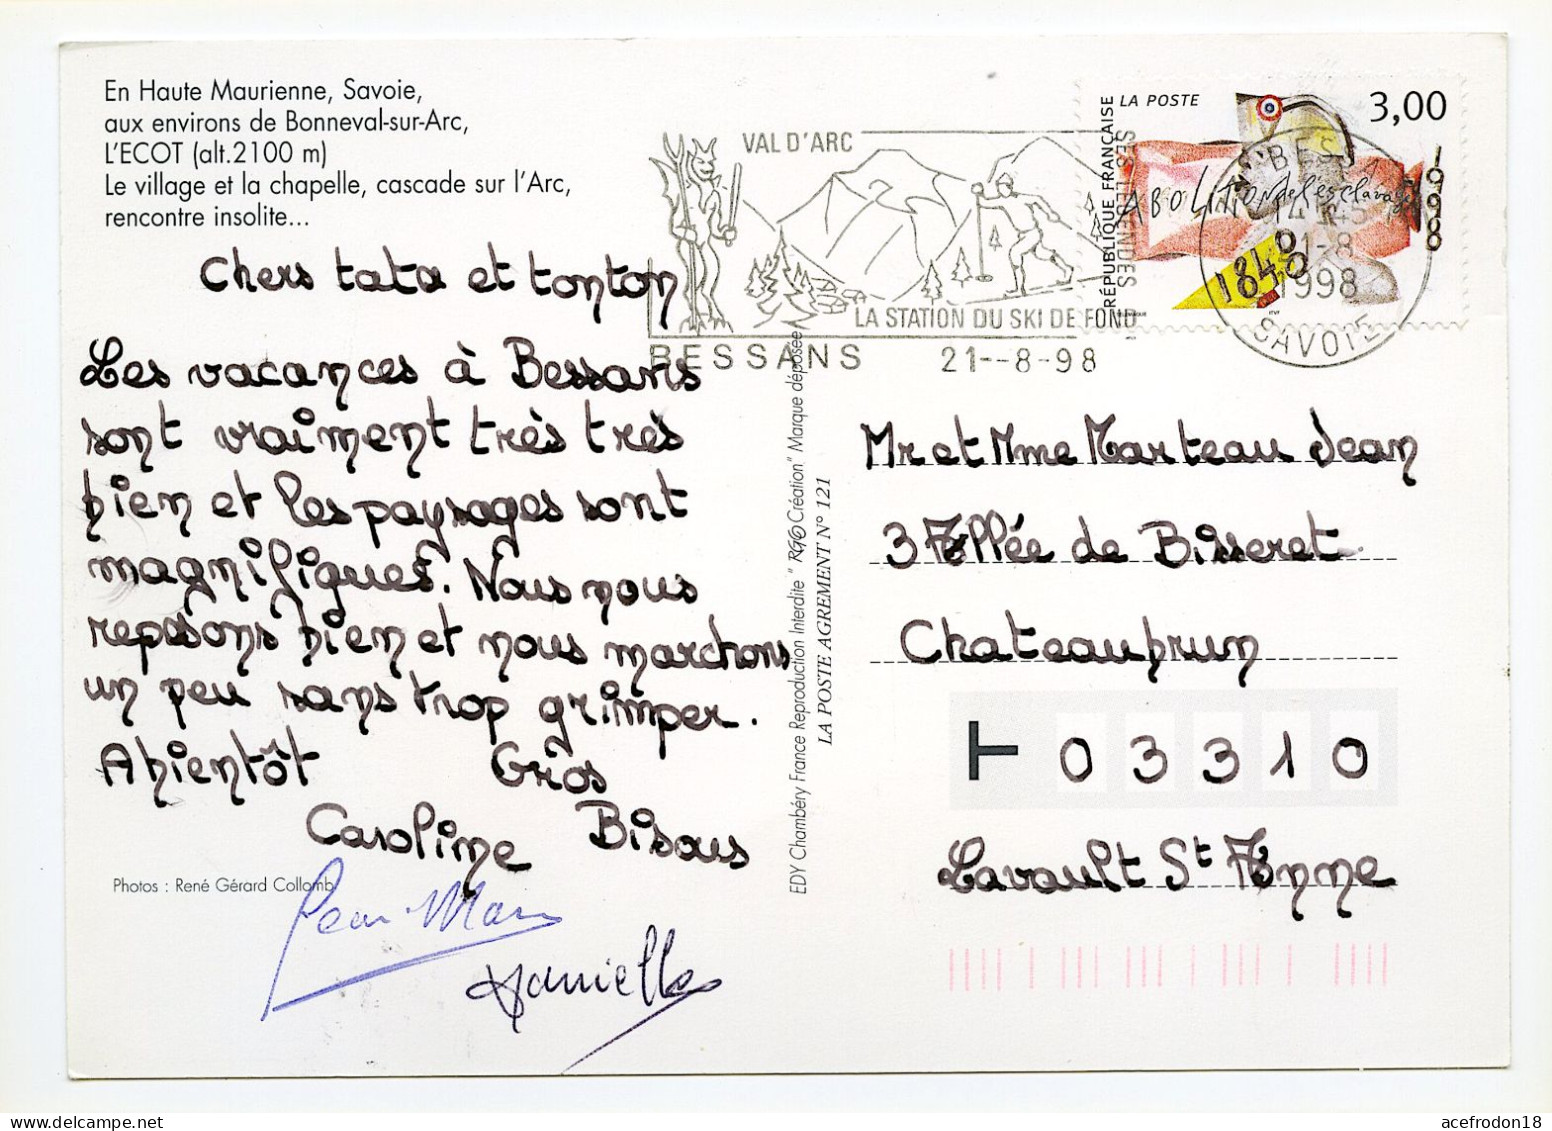 En Haute Maurienne, Savoie,
aux environs de Bonneval-sur-Arc,
L'ECOT (alt.2100 m)
Le village et la chapelle, cascade sur l'Arc,
rencontre insolite...
Chers tata et tonton
Les vacances à Bessans
sont vraiment très très
bien et les paysages sont
magnifiques. Nous nous
reposons bien et nous marchons
un peu sans trop grimper.
A bientôt Gros
Caroline Bisous
Photos : René Gérard Collomb
Jean-Marc
Danielle
EDY Chambéry France Reproduction Interdite " RGC Création" Marque déposée
LA POSTE AGREMENT N° 121
VAL D'ARC
SES LEGENDES
LA STATION DU SKI DE FOND
BESSANS 21--8-98
RÉPUBLIQUE FRANÇAISE
LA POSTE
3,00
ABOLITION de l'esclavage
1998
1848
21-8
1998
SAVOIE
Mr et Mme Marteau Jean
3 Allée de Bisseret
Chateaubrun
T 03310
Lavault St Anne
acefrodon18